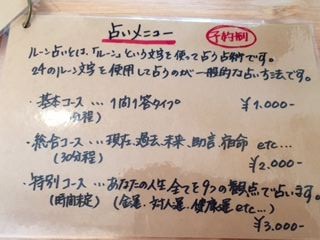 占いメニュー 予約制
ルーン占いとは、「ルーン」という文字を使って占う占術です。
24のルーン文字を使用して占うのが一般的な占い方法です。
・基本コース … 1問1答タイプ ¥1,000-
分程)
・総合コース … 現在、過去、未来、助言、宿命 etc…
(30分程) ¥2,000-
・特別コース … あなたの人生全てを9つの観点で占います。
(時間未定) (金運、対人運、健康運etc…)
¥3,000-